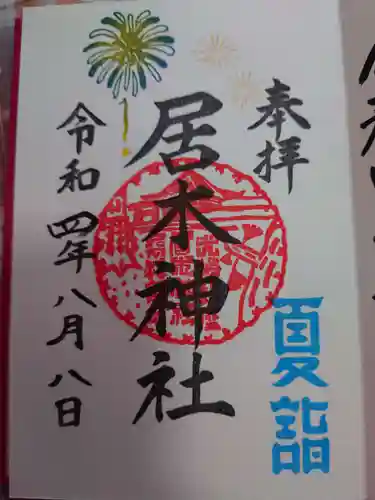 奉拝
居木神社
令和四年八月八日
夏詣